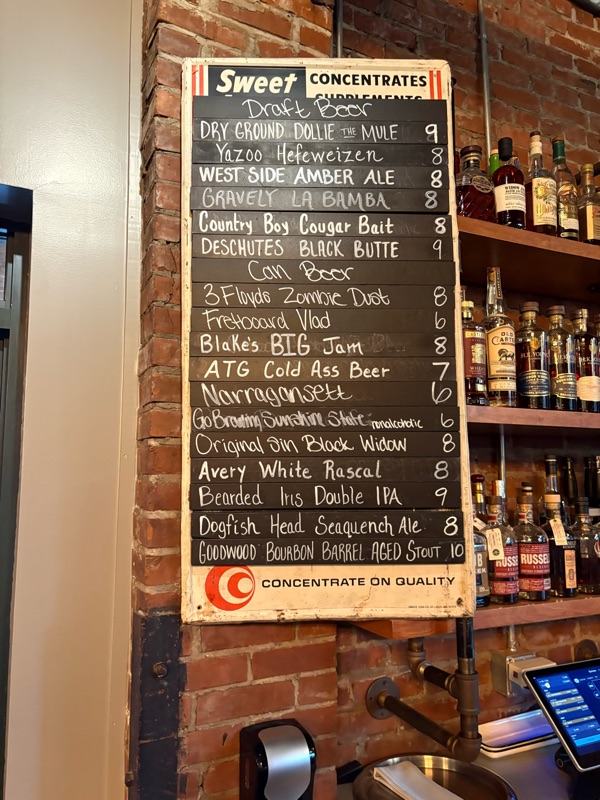 Sweet CONCENTRATES
Draft Beer
DRY GROUND DOLLIE THE MULE 9
Yazoo Hefeweizen 8
WEST SIDE AMBER ALE 8
GRAVELY LA BAMBA 8
Country Boy Cougar Bait 8
DESCHUTES BLACK BUTTE 9
Can Beer
3 Floyds Zombie Dust 8
Fretboard Vlad 6
Blake's BIG Jam 8
ATG Cold Ass Beer 7
Narragansett 6
Go Brewing Sunshine State nonalcoholic 6
Original Sin Black Widow 8
Avery White Rascal 8
Bearded Iris Double IPA 9
Dogfish Head Seaquench Ale 8
GOODWOOD BOURBON BARREL AGED STOUT 10
CONCENTRATE ON QUALITY
RUSSELL
RUSSELL